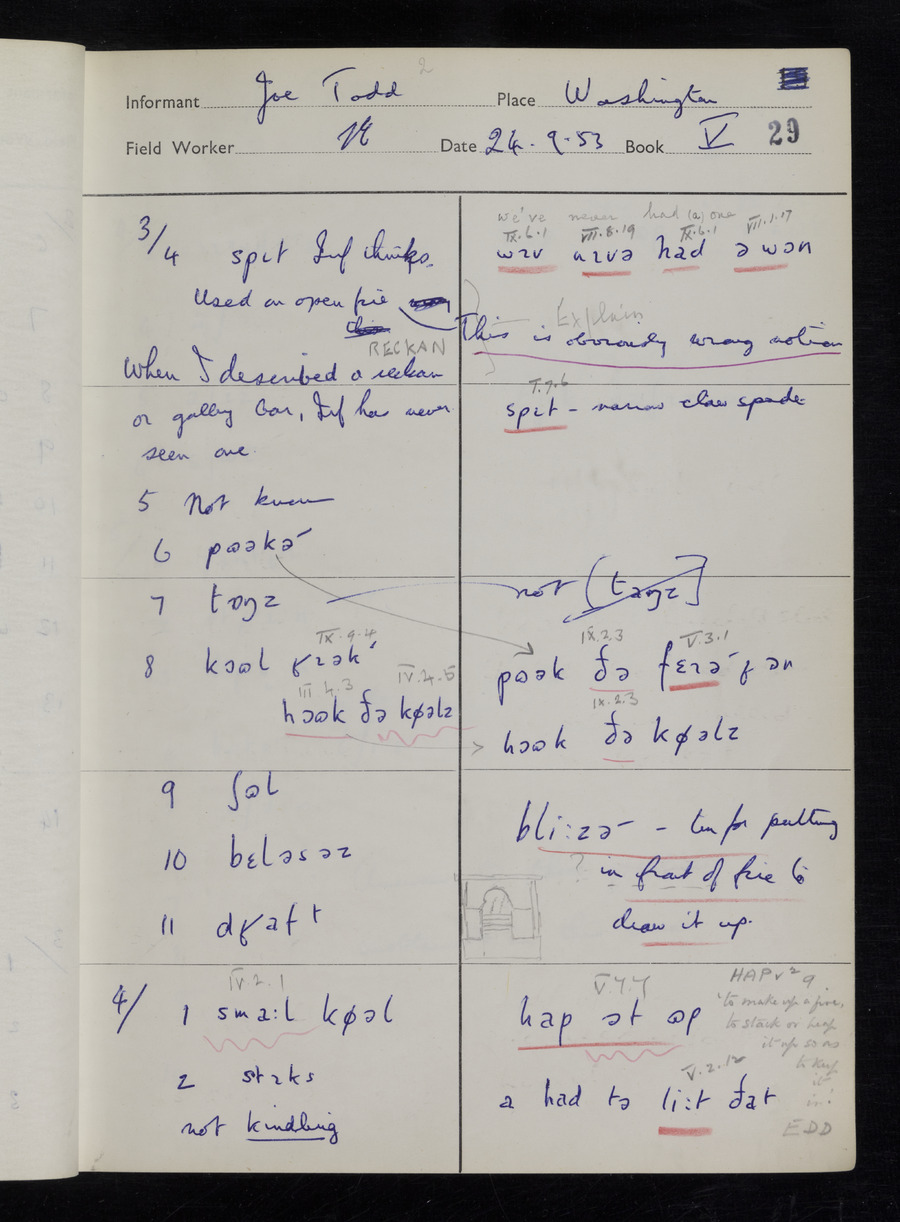 2
Informant Joe Todd Place Washington
Field Worker Date 24.9.53 Book V 29
3/4 spɪt Inf thinks.
Used on open fire
RECKAN
When I described a reckan
or galley bar, Inf has never
seen one.
5 Not known
6 pɷəkə
7 tɒŋz
IX.9.4
8 kɔəl ʁzək
III 4.3 IV.4.5
hɔək ðə køəlz
9 ʃɷl
10 bɛləsəz
11 dʁaft
IV.2.1
4/ 1 sma:l køəl
2 stɪks
not kindling
we've never had (a) one
IX.6.1 VII.8.19 IX.6.1 VII.1.17
wɪv nɪvə had ə wən
Explain
This is obviously wrong notion
I.7.6
spɪt - narrow claw spade
not [taŋz]
IX.2.3 V.3.1
pɷək ðə fɛɪə ʁən
IX.2.3
hɔək ðə køəlz
bli:zə - tin for putting
? in front of fire to
draw it up.
V.4.4
hap ət ɷp
HAP v² 9.
'to make up a fire,
to stack or heap
it up so as
to keep
it
in'
EDD
V.2.12
a had tə li:t ðat